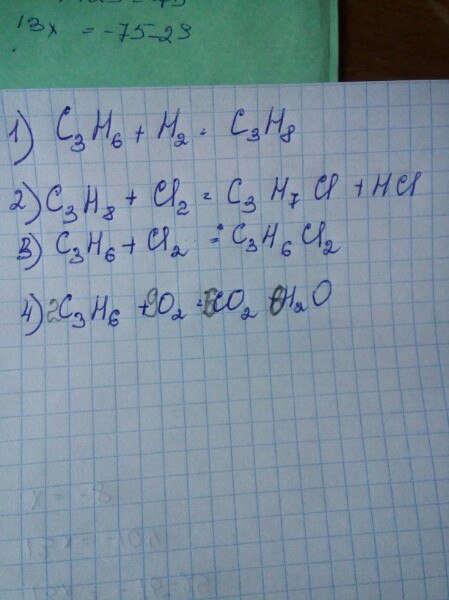 13x = -75-29
1) C3H6 + H2 = C3H8
2) C3H8 + Cl2 = C3H7Cl + HCl
3) C3H6 + Cl2 = C3H6Cl2
4) 2C3H6 + 9O2 = 6CO2 + 6H2O